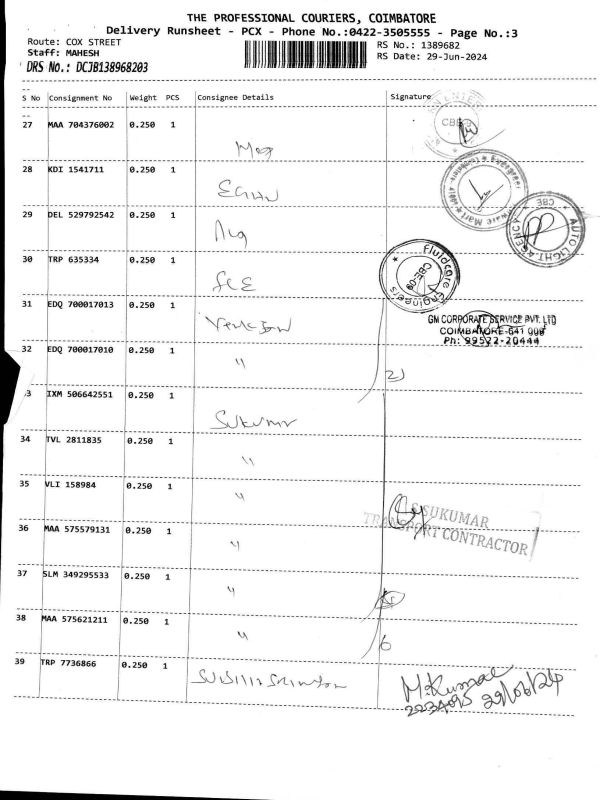 THE PROFESSIONAL COURIERS, COIMBATORE
Delivery Runsheet - PCX - Phone No.:0422-3505555 - Page No.:3
Route: COX STREET
RS No.: 1389682
Staff: MAHESH
RS Date: 29-Jun-2024
DRS No.: DCJB138968203
S No Consignment No Weight PCS Consignee Details Signature
27 MAA 704376002 0.250 1
28 KDI 1541711 0.250 1
29 DEL 529792542 0.250 1
AUTO LIGHT AGENCY CBE
30 TRP 635334 0.250 1
Fluidcare Engineers CBE-09
31 EDQ 700017013 0.250 1
GM CORPORATE SERVICE PVT. LTD
COIMBATORE-641 009
Ph: 99522-20444
32 EDQ 700017010 0.250 1 "
2
3 IXM 506642551 0.250 1
Sukumar
34 TVL 2811835 0.250 1 "
35 VLI 158984 0.250 1 "
S SUKUMAR
TRANSPORT CONTRACTOR
36 MAA 575579131 0.250 1 "
37 SLM 349295533 0.250 1 "
38 MAA 575621211 0.250 1 "
6
39 TRP 7736866 0.250 1
M. Kumar
29/06/24